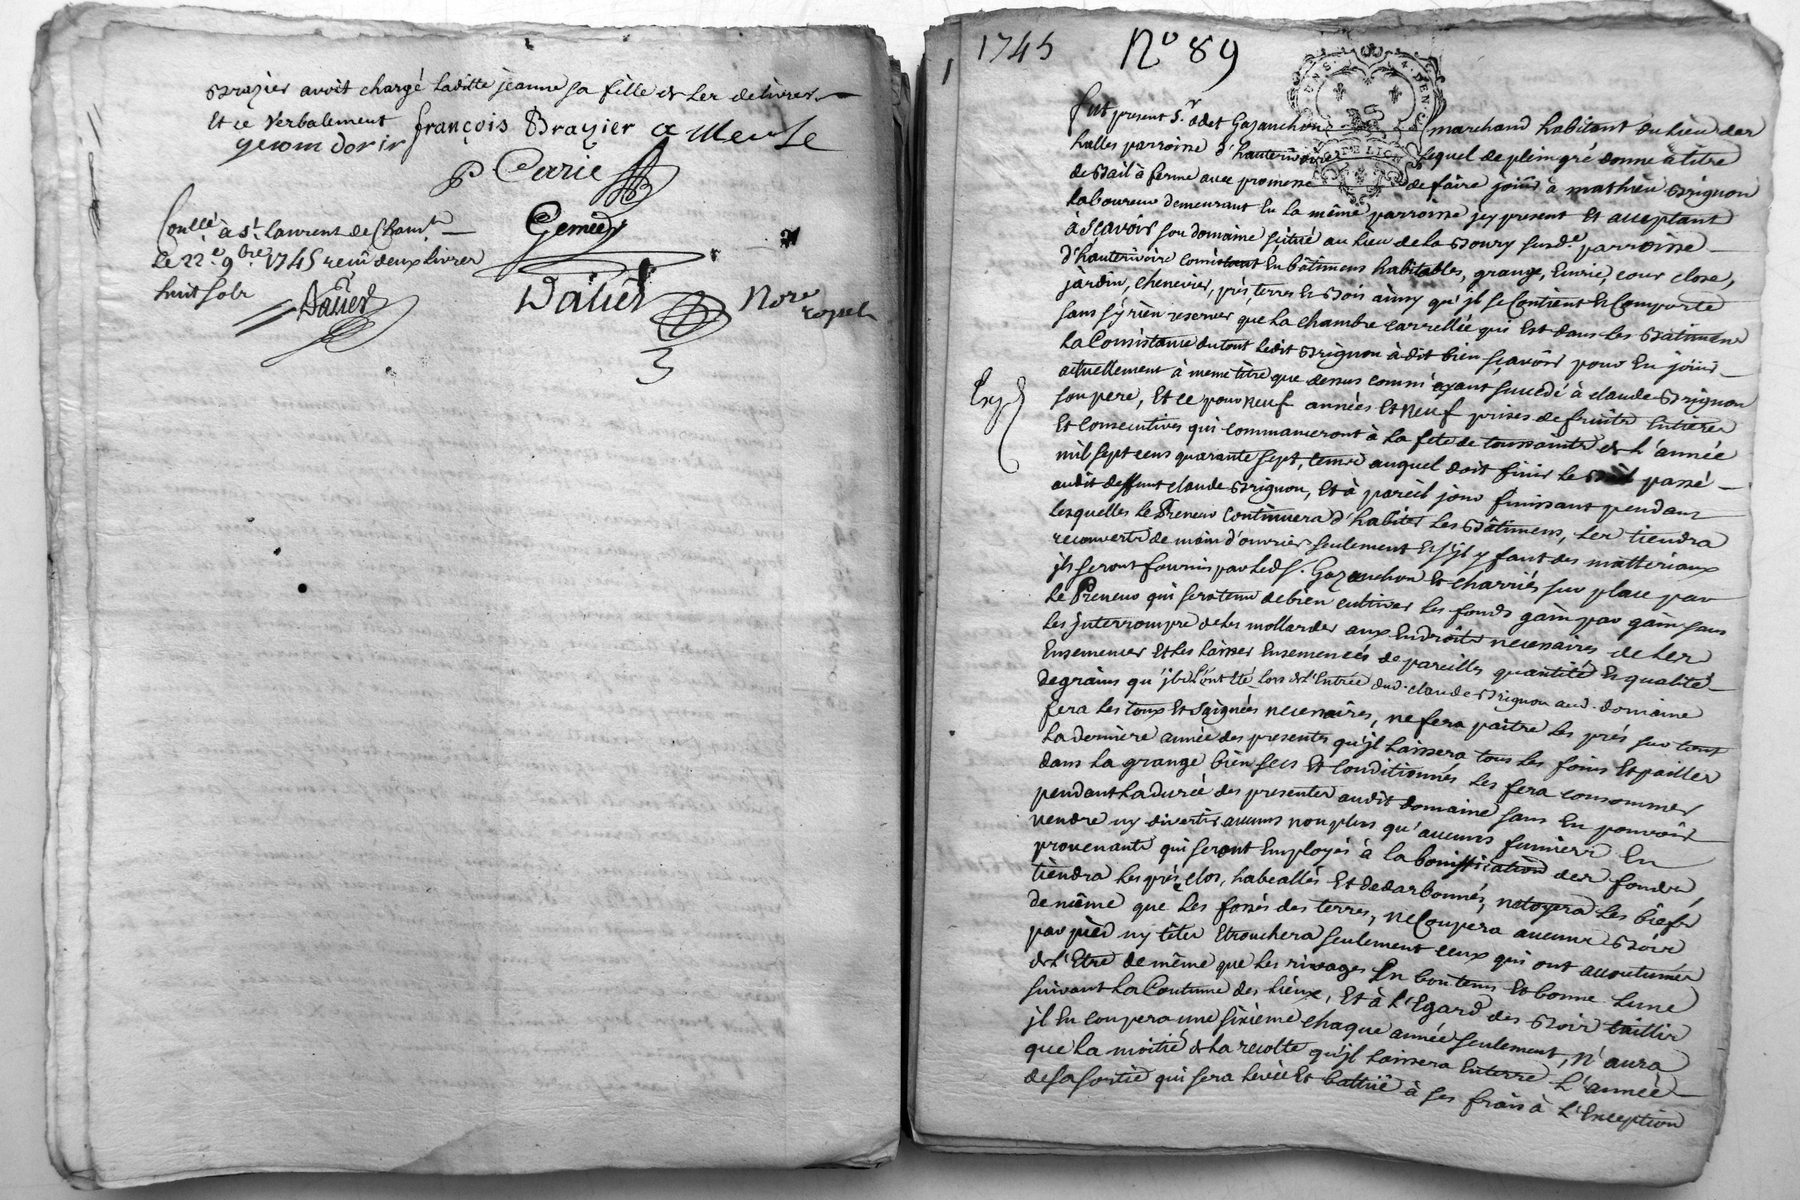 Brazier avoit chargé laditte jeanne sa fille de les delivrer
Et ce verbalement françois Brazier
P Carrie
Gemedy
Conllé à St. laurent de Cham.t
le 22e 9bre 1745 reçu deux livres
huit sols
Dalier
Dalier Nore royal
3
1745 No 89
GEN. DE LION
fut present Sr. odet Gazanchon marchand habitant du lieu des
halles parroisse d'hauterivoire lequel de plein gré donne à titre
de Bail à ferme avec promesse de faire jouir à mathieu Brignon
laboureur demeurant En la même parroisse jcy present Et acceptant
à sçavoir son domaine situé au lieu de la Boury susde. parroisse
d'hauterivoire consistant En bâtimens habitables, grange, Ecurie, cour close,
jardin, chenevier, prés, terres Et Bois ainsy qu'jl se Contient Et Comporte
sans s'y rien reserver que la chambre carrellée qui Est dans les Bâtimens
la Consistance du tout ledit Brignon à dit bien sçavoir pour En jouir
actuellement à meme titre que dessus comm' ayant succedé à claude Brignon
Exp
son pere, Et ce pour neuf années Et neuf prises de fruits Entieres
Et consecutives qui commanceront à la fete de toussaints de l'année
mil sept cens quarante sept, tems auquel doit finir le Bail passé
audit deffunt claude Brignon, Et à pareil jour finissant pendant
lesquelles le Preneur continuera d'habiter les Bâtimens, les tiendra
recouverts de main d'ouvrier seulement Et s'jl y faut des matteriaux
jls seront fournis par led. S. Gazanchon Et charriés sur place par
le Preneur qui sera tenu de bien cultiver les fonds gain par gain sans
les jnterrompre de les mollarder aux Endroits necessaires de les
Ensemencer Et les laisser Ensemencés de pareilles quantité Et qualité
de grains qu'jls l'ont Eté lors de l'Entrée dud. claude Brignon aud. domaine
fera les toux Et saignées necessaires, ne fera paitre les prés sur tout
la derniere année des presents qu'jl laissera tous les foins Et pailles
dans la grange bien secs Et Conditionnés les fera consommer
pendant la durée des presentes audit domaine sans En pouvoir
vendre ny divertir aucuns non plus qu'aucuns fumiers En
provenants qui seront Employés à la bonnification des fonds,
tiendra les prés clos, habeallés Et dedarbonnés, netoyera les biefs
de même que les fossés des terres, ne Coupera aucuns Bois
par pied ny têtes Etronchera seulement ceux qui ont accoutumés
de l'Etre de même que les rivages En bon tems Et bonne lune
suivant la Coutume des lieux, Et à l'Egard des Bois taillis
jl En coupera une sixieme chaque année seulement, n'aura
que la moitié de la recolte qu'jl laissera Enterre l'année
de sa sortie qui sera levée Et battuë à ses frais à l'Exception